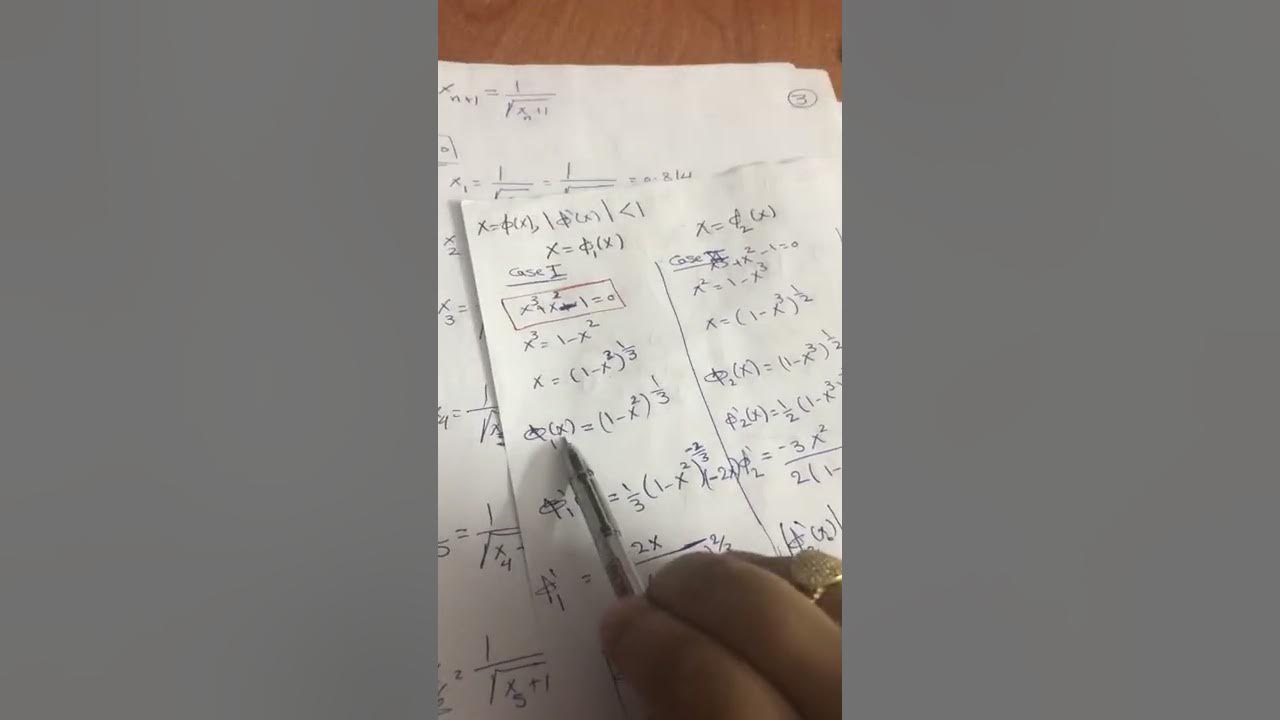 x_{n+1} = 1/√(x_n+1)
3
x_1 = 1/√ = 1/√ = 0.814
x_2
x_3 =
x_4 = 1/√x
5 = 1/√x_4
= 1/√(x_5+1)
x=φ(x), |φ'(x)| <1
x = φ_1(x)
Case I
x^3+x^2-1=0
x^3 = 1-x^2
x = (1-x^2)^{1/3}
φ_1(x) = (1-x^2)^{1/3}
φ_1' = 1/3 (1-x^2)^{-2/3} (-2x)
φ_1' = 2x 2/3
x = φ_2(x)
Case II
x^3+x^2-1=0
x^2 = 1-x^3
x = (1-x^3)^{1/2}
φ_2(x) = (1-x^3)^{1/2}
φ_2'(x) = 1/2 (1-x^3)
φ_2' = -3x^2 / 2(1-
|φ_2'(x)|